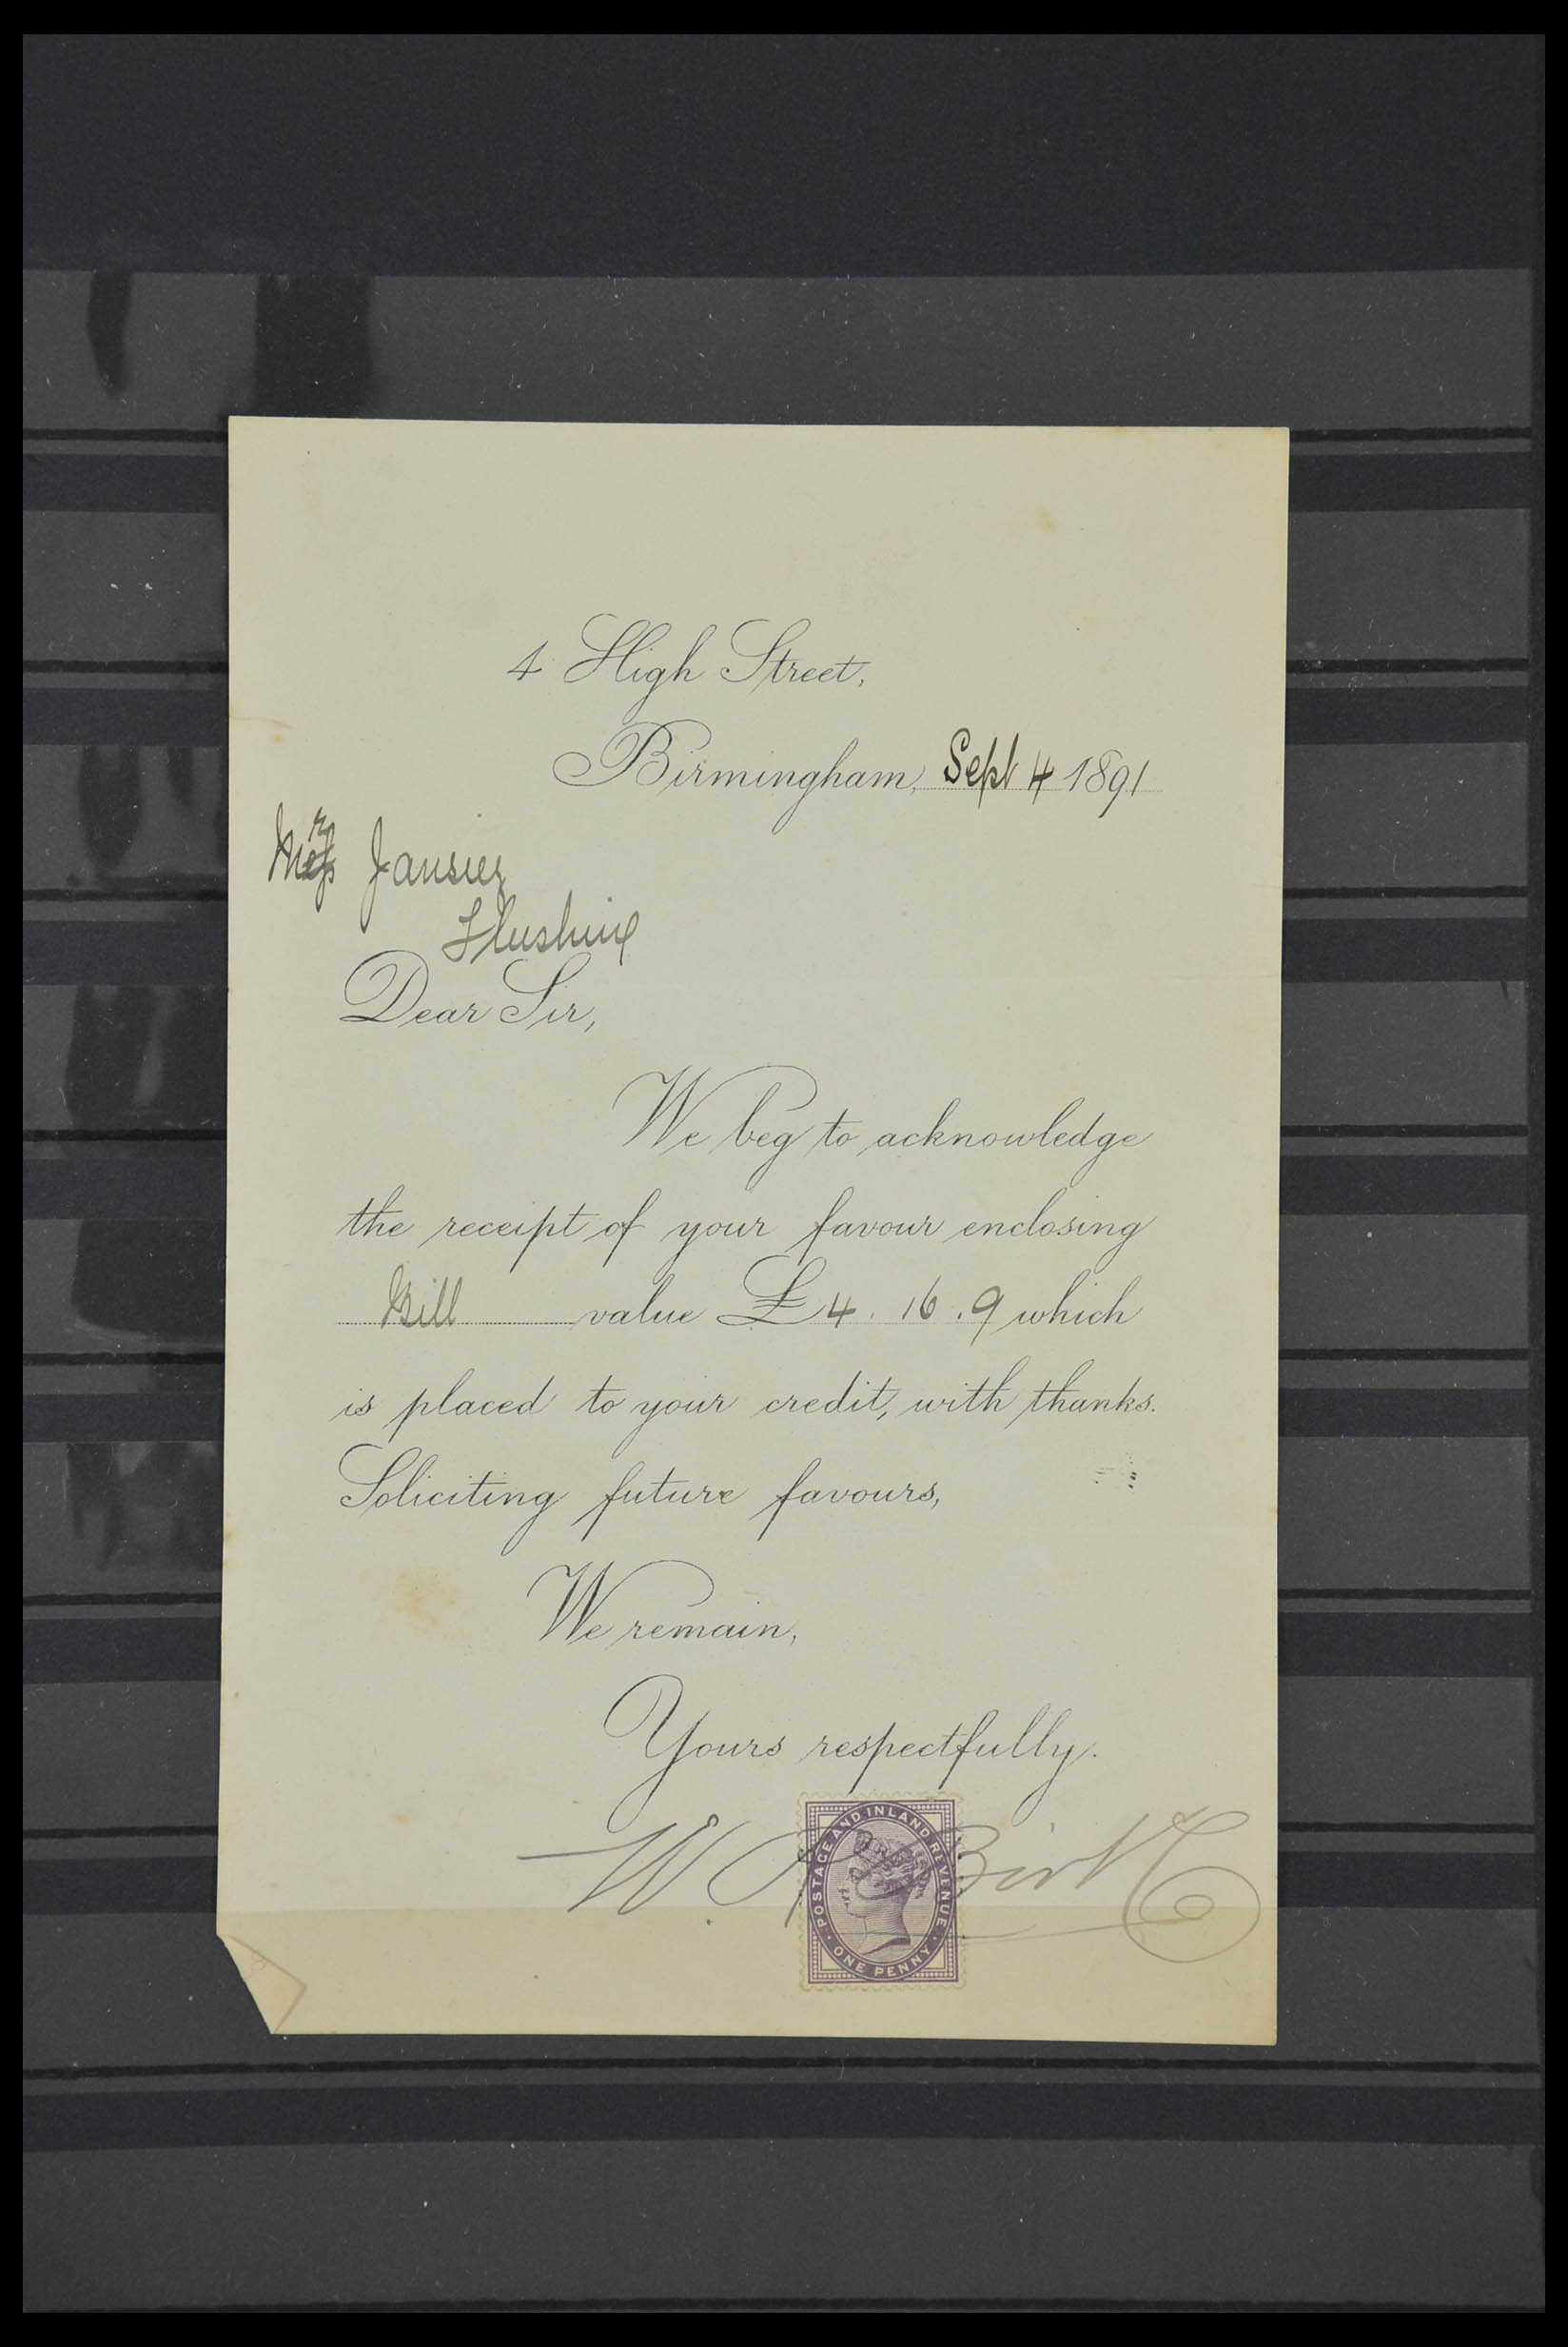 4 High Street,
Birmingham, Sept 4 1891
Flushing
Dear Sir,
We beg to acknowledge
the receipt of your favour enclosing
Bill value £4.16.9 which
is placed to your credit, with thanks.
Soliciting future favours,
We remain,
Yours respectfully.
W. Birt
POSTAGE AND INLAND REVENUE
ONE PENNY